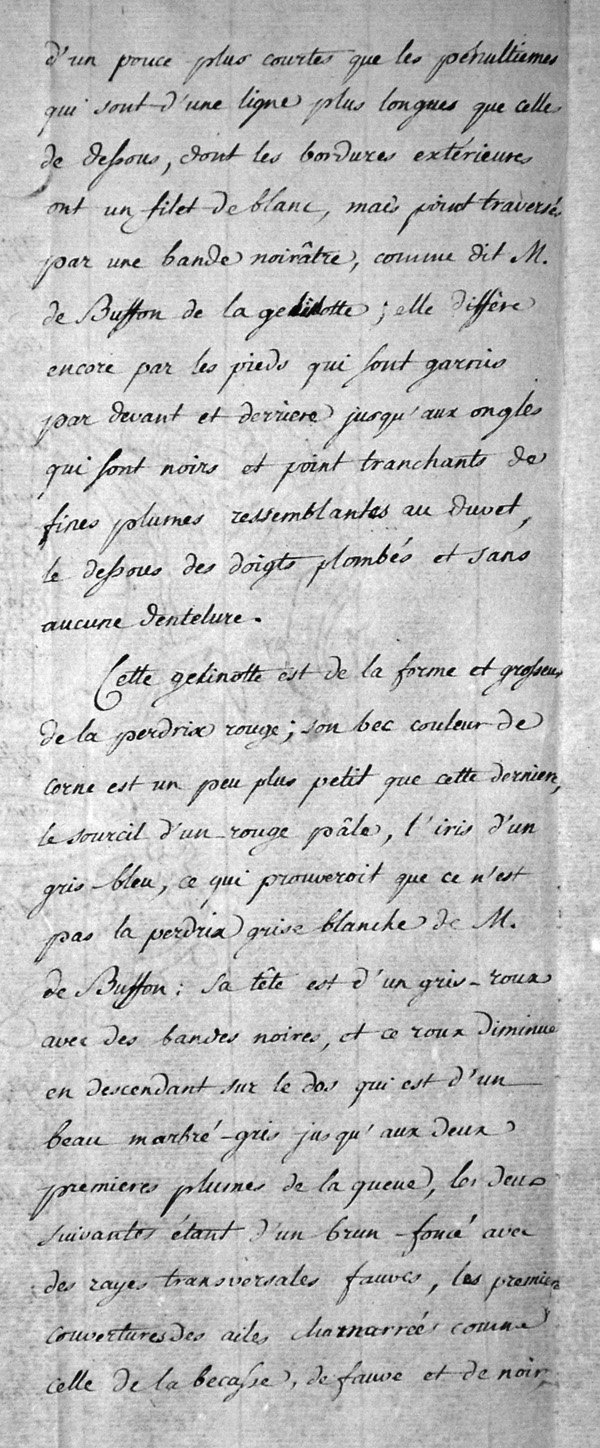 d'un pouce plus courtes que les pénultiemes
qui sont d'une ligne plus longues que celles
de dessous, dont les bordures extérieures
ont un filet de blanc, mais point traversés
par une bande noirâtre, comme dit M.
de Buffon de la gelinotte ; elle diffère
encore par les pieds qui sont garnis
par devant et derriere jusqu'aux ongles
qui sont noirs et point tranchants de
fines plumes ressemblantes au duvet,
le dessous des doigts plombés et sans
aucune dentelure.
Cette gelinotte est de la forme et grosseur
de la perdrix rouge ; son bec couleur de
corne est un peu plus petit que cette derniere,
le sourcil d'un rouge pâle, l'iris d'un
gris-bleu, ce qui prouveroit que ce n'est
pas la perdrix grise blanche de M.
de Buffon : sa tête est d'un gris-roux
avec des bandes noires, et ce roux diminue
en descendant sur le dos qui est d'un
beau marbré-gris jusqu'aux deux
premieres plumes de la queue, les deux
suivantes étant d'un brun-foncé avec
des rayes transversales fauves, les premieres
couvertures des ailes chamarrées comme
celle de la becasse, de fauve et de noir,